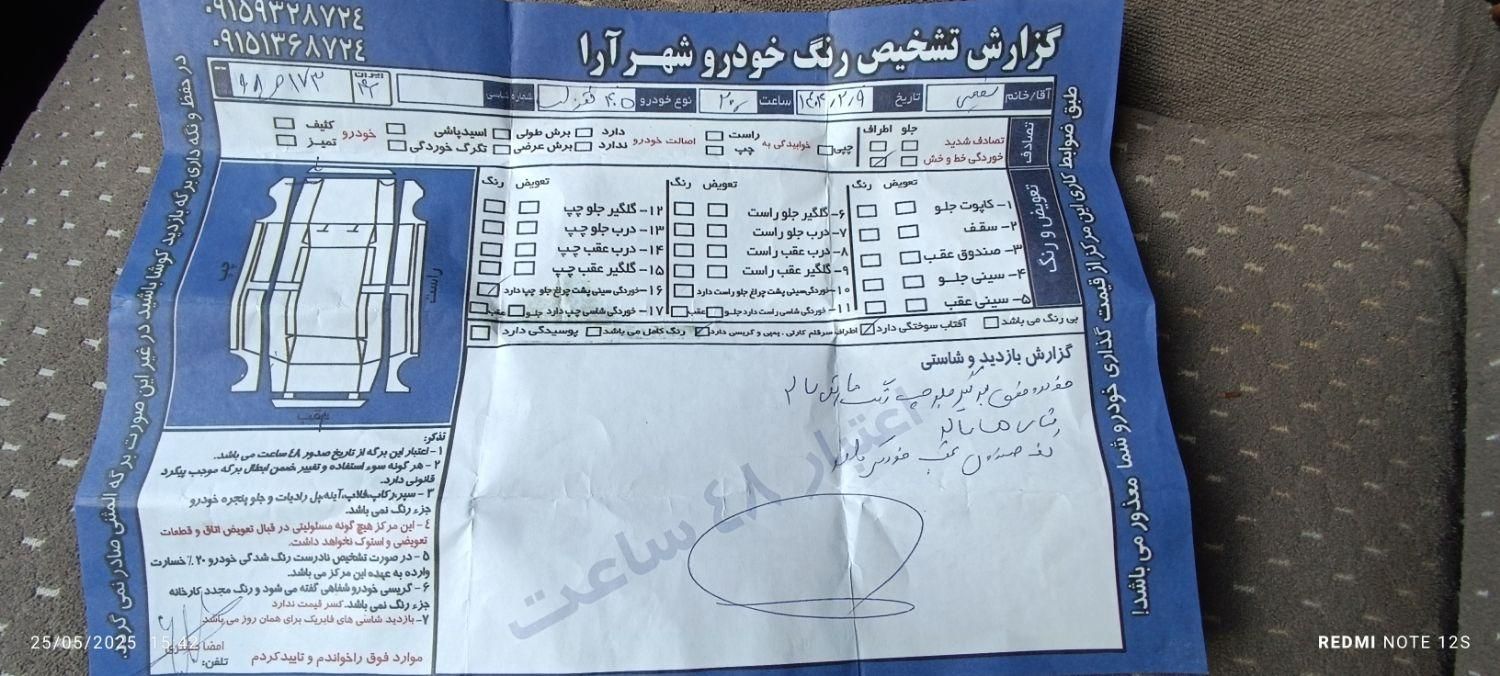 ۰۹۱۵۹۳۲۸۷۲۴
۰۹۱۵۱۳۶۸۷۲۴
گزارش تشخیص رنگ خودرو شهر آرا
آقا/خانم
تاریخ ۱۴۰۴/۲/۹
ساعت
نوع خودرو ۴۰۵
شماره شاسی
ایران
تصادف
جلو اطراف
تصادف شدید
خوردگی خط و خش
خوابیدگی به
راست
چپ
اصالت خودرو
دارد
ندارد
برش طولی
برش عرضی
اسیدپاشی
تگرگ خوردگی
خودرو
کثیف
تمیز
تعویض و رنگ
تعویض رنگ
۱- کاپوت جلو
۲- سقف
۳- صندوق عقب
۴- سینی جلو
۵- سینی عقب
تعویض رنگ
۶- گلگیر جلو راست
۷- درب جلو راست
۸- درب عقب راست
۹- گلگیر عقب راست
۱۰- خوردگی سینی پشت چراغ جلو راست دارد
۱۱- خوردگی شاسی راست دارد جلو عقب
تعویض رنگ
۱۲- گلگیر جلو چپ
۱۳- درب جلو چپ
۱۴- درب عقب چپ
۱۵- گلگیر عقب چپ
۱۶- خوردگی سینی پشت چراغ جلو چپ دارد
۱۷- خوردگی شاسی چپ دارد جلو عقب
بی رنگ می باشد
آفتاب سوختگی دارد
رنگ کامل می باشد
پوسیدگی دارد
چپ
راست
گزارش بازدید و شاستی
اعتبار ۴۸ ساعت
تذکر:
۱- اعتبار این برگه از تاریخ صدور ۴۸ ساعت می باشد.
۲- هر گونه سوء استفاده و تغییر ضمن ابطال برگه موجب پیگرد
قانونی دارد.
۳- سپر، رکاب، قالب، آینه، پل رادیات و جلو پنجره خودرو
جزء رنگ نمی باشد.
۴- این مرکز هیچ گونه مسئولیتی در قبال تعویض اتاق و قطعات
تعویضی و استوک نخواهد داشت.
۵- در صورت تشخیص نادرست رنگ شدگی خودرو ۲۰٪ خسارت
وارده به عهده این مرکز می باشد.
۶- گریسی خودرو شفاهی گفته می شود و رنگ مجدد کارخانه
جزء رنگ نمی باشد. کسر قیمت ندارد
۷- بازدید شاسی های فابریک برای همان روز می باشد
امضا مشتری
تلفن:
موارد فوق را خواندم و تایید کردم
در حفظ و نگه داری برگه بازدید کوشا باشید در غیر این صورت برگه المثنی صادر نمی گردد.
طبق ضوابط کاری این مرکز از قیمت گذاری خودرو شما معذور می باشد!
25/05/2025 15:42
REDMI NOTE 12S